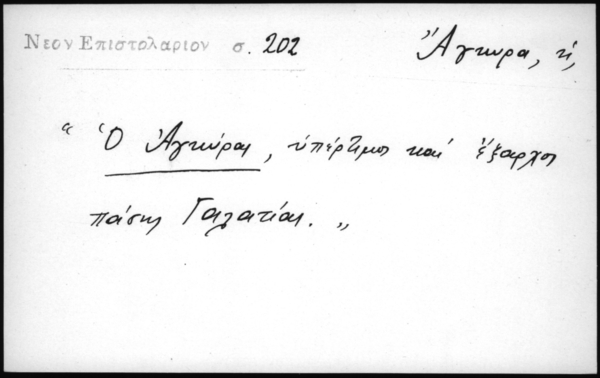 Νεον Επιστολαριον σ. 202
Ἄγκυρα, ἡ,
“ Ὁ Ἀγκύρας, ὑπέρτιμος καί ἔξαρχος
πάσης Γαλατίας. „